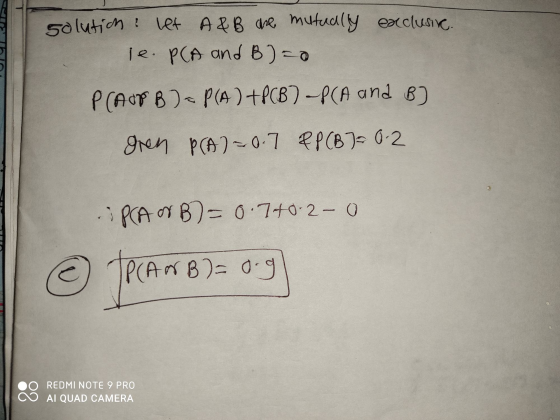 Solution: Let A & B are mutually exclusive.
i.e. P(A and B) = 0
P(A or B) = P(A) + P(B) - P(A and B)
given P(A) = 0.7 & P(B) = 0.2
∴ P(A or B) = 0.7 + 0.2 - 0
c P(A or B) = 0.9
REDMI NOTE 9 PRO
AI QUAD CAMERA